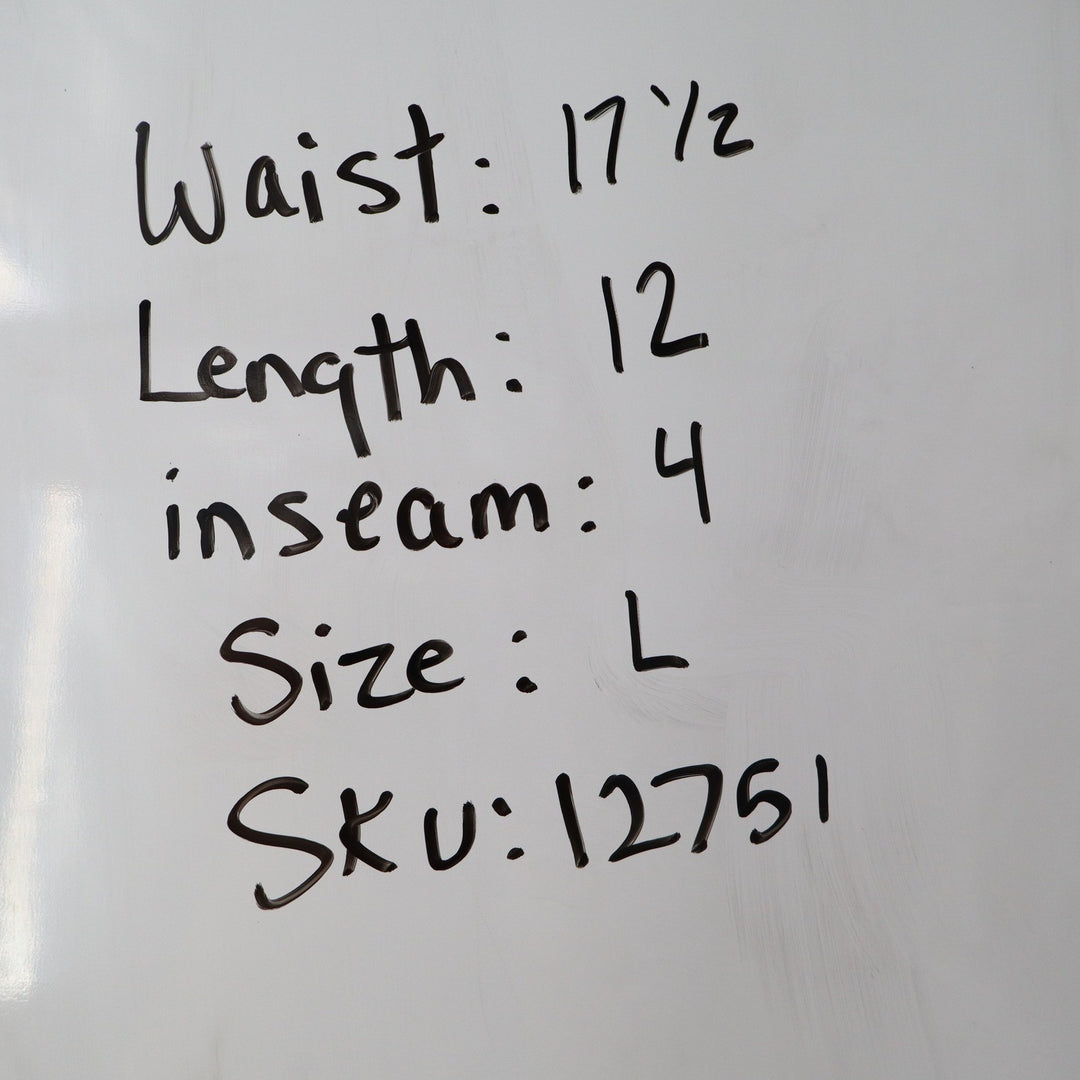 Waist: 17 1/2
Length: 12
inseam: 4
Size: L
SKU: 12751